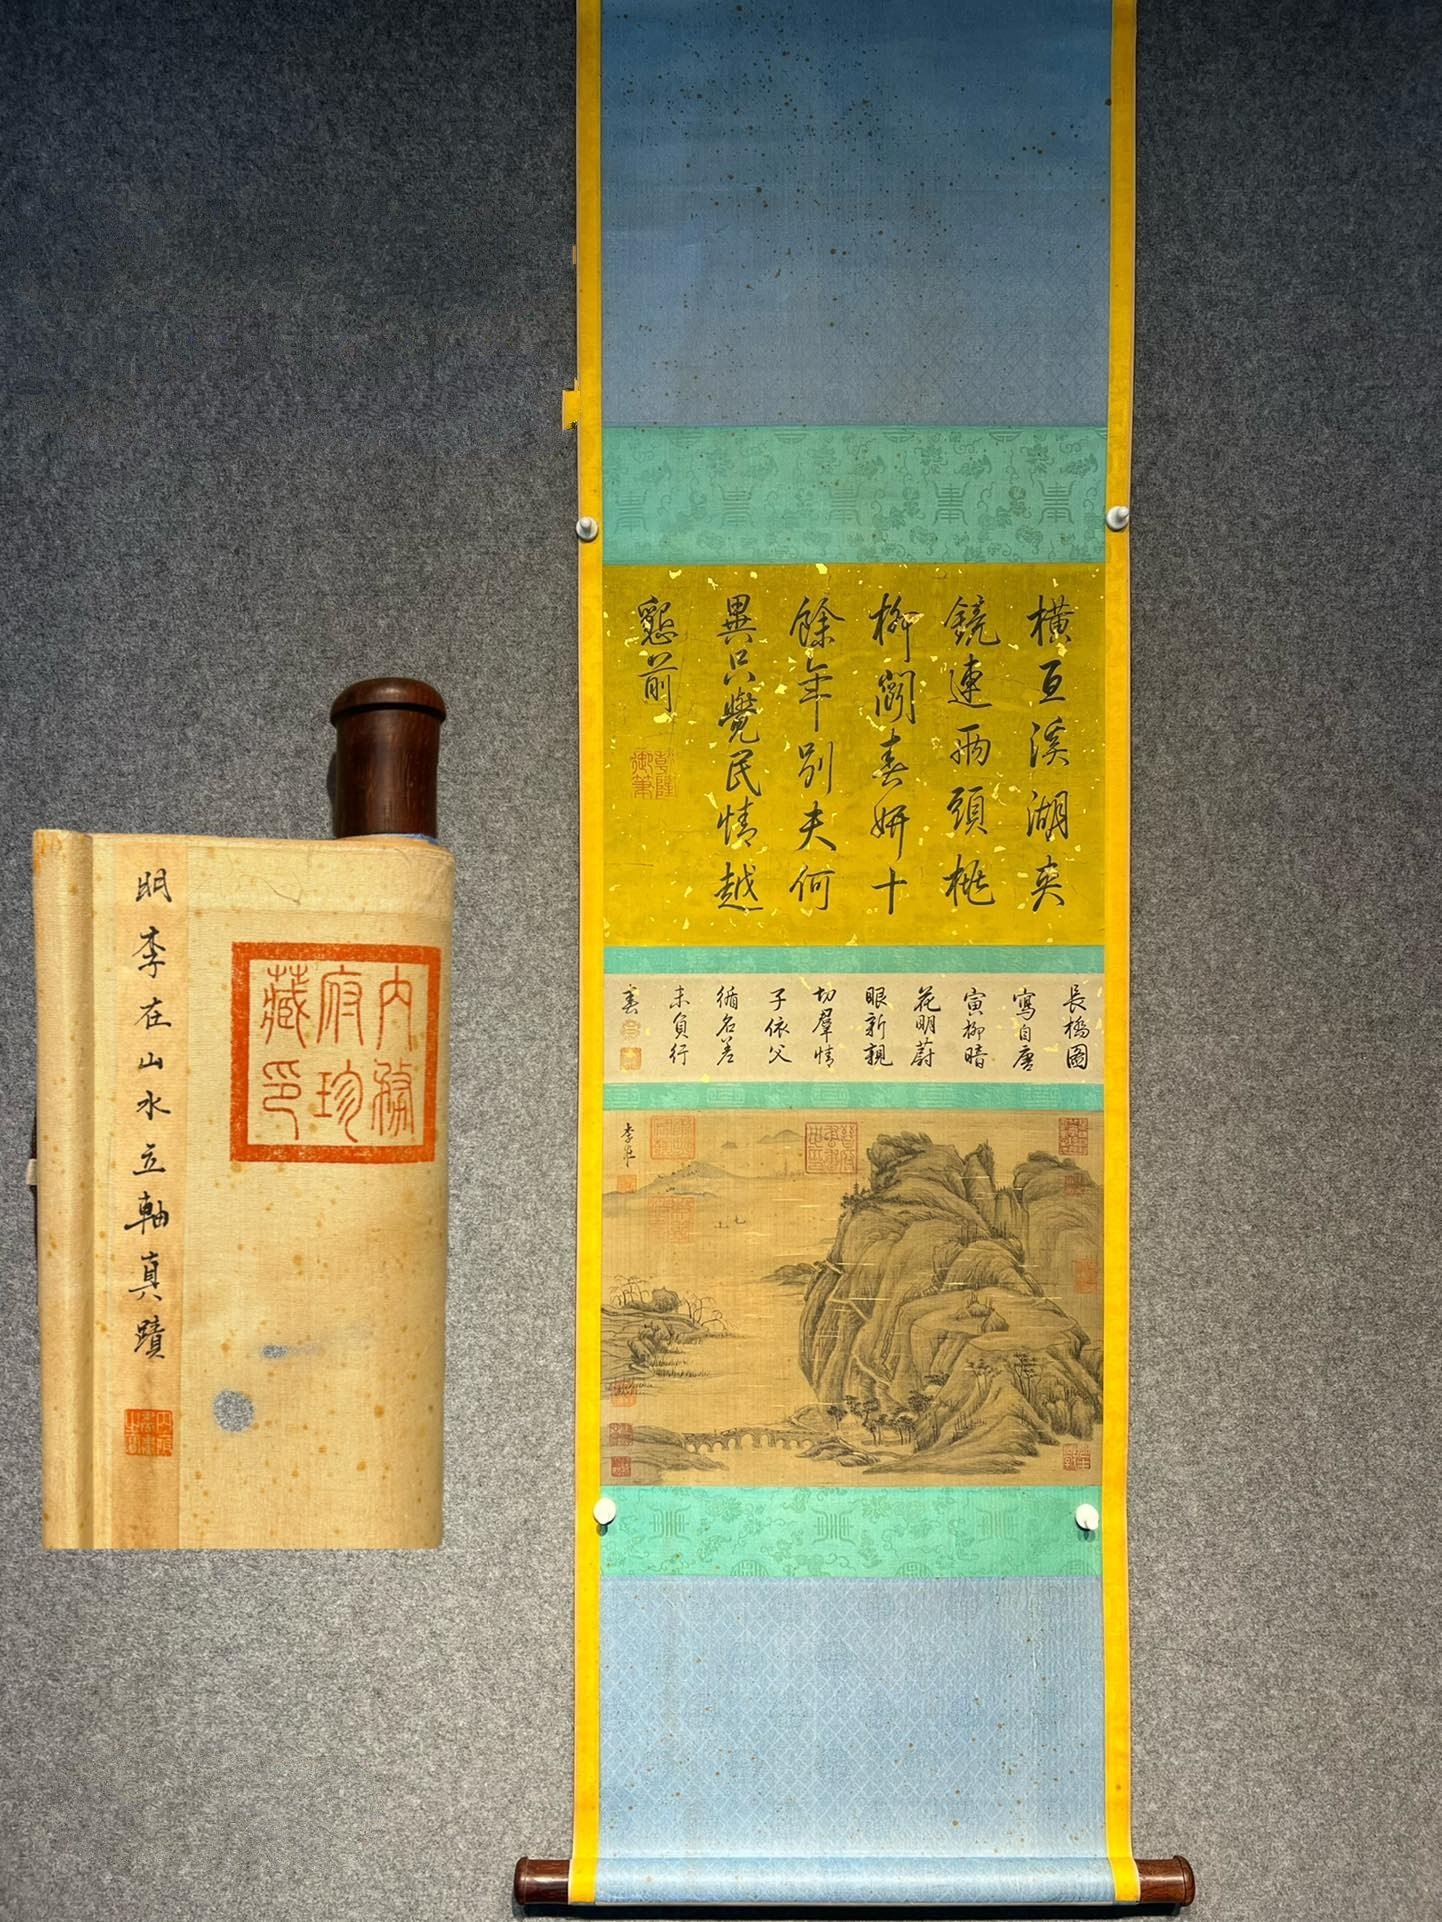 橫亙溪湖爽
鏡連兩頭桃
柳鬥春妍十
餘年別夫何
異只覺民情越
懇前
乾隆
御筆
長橋圖
寫自唐
寅柳暗
花明蔚
眼新親
切羣情
子依父
循名羞
未負行
春
李在
明李在山水立軸真蹟
內務
府珍
藏印